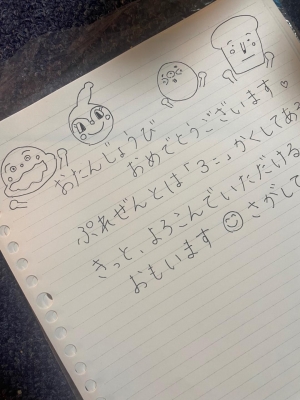 おたんじょうび
おめでとうございます♡
ぷれぜんとは「3=」かくしてあ
きっと、よろこんでいただける
おもいます😊さがして